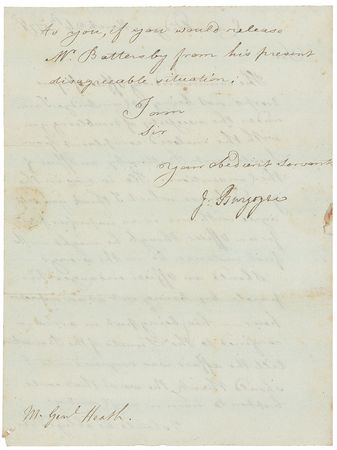 to you, if you would release
Mr Battersby from his present
disagreeable situation.
I am
Sir
Your obedient Servant
J. Burgoyne
M. Genl Heath.